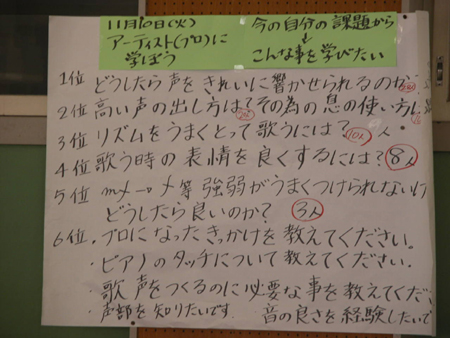 11月10日(火)
アーティスト(プロ)に
学ぼう
今の自分の課題から
↓
こんな事を学びたい
1位 どうしたら声をきれいに響かせられるのか?
2位 高い声の出し方は?その為の息の使い方は
3位 リズムをうまくとって歌うには? 10人
4位 歌う時の表情を良くするには? 8人
5位 等強弱がうまくつけられないけ
どうしたら良いのか? 3人
6位 ・プロになったきっかけを教えてください。
・ピアノのタッチについて教えてください.
・歌声をつくるのに必要な事を教えてくだ
・声部を知りたいです. 音の良さを経験したいで